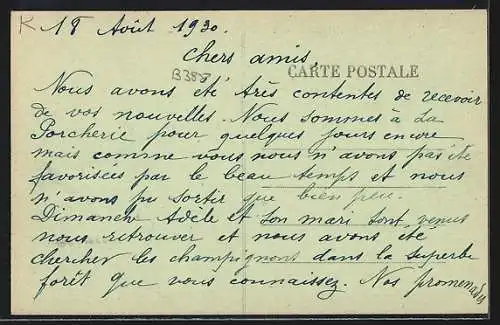 K 18 Août 1930.
Chers amis,
B385
CARTE POSTALE
Nous avons été très contentes de recevoir
de vos nouvelles. Nous sommes à La
Porcherie pour quelques jours encore
mais comme vous nous n'avons pas été
favorisées par le beau temps et nous
n'avons pu sortir que bien peu.
Dimanche Adèle et son mari sont venus
nous retrouver et nous avons été
chercher les champignons dans la superbe
forêt que vous connaissez. Nos promenades